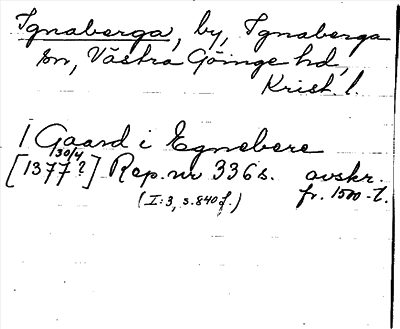 Ignaberga, by, Ignaberga
sn, Västra Göinge hd,
Krist. l.
1 Gaard i Egnebere
30/4
[1377?] Rep. nr 336 s. avskr.
(I:3, s. 840 f.) fr. 1500-t.